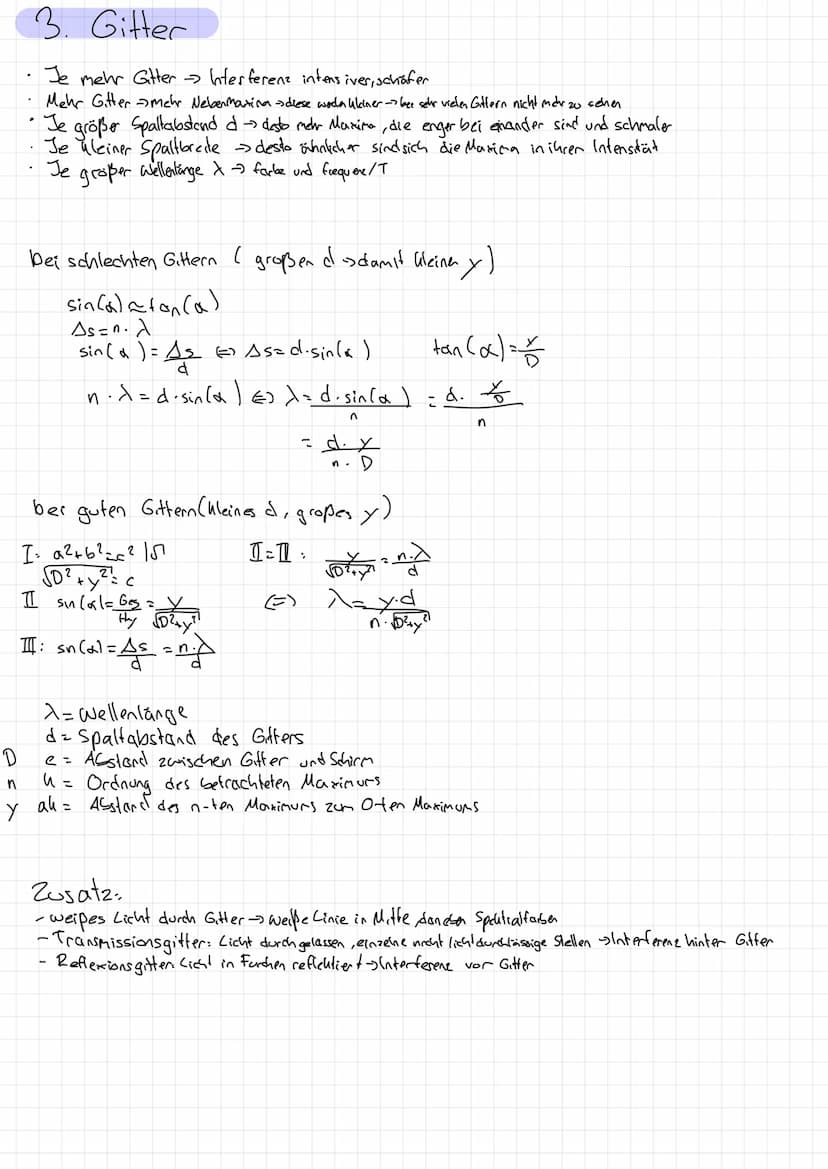 3. Gitter
· Je mehr Gitter → Interferenz intensiver, schäfer
· Mehr Gitter → mehr Nebenmaxima → diese werden kleiner → bei sehr vielen Gittern nicht mehr zu sehen
· Je größer Spaltabstand d → desto mehr Maxima, die enger bei einander sind und schmaler
· Je kleiner Spaltbreite → desto ähnlicher sind sich die Maxima in ihrer Intensität
· Je größer Wellenlänge λ → farbe und frequenz/T
bei schlechten Gittern ( großen d → damit kleinen y )
sin(α) ≈ tan(α)
Δs = n · λ
sin(α) = Δs/d ⇔ Δs = d · sin(α) tan(α) = y/D
n · λ = d · sin(α) ⇔ λ = d · sin(α)/n = d · y/D/n
= d · y/n · D
bei guten Gittern (kleines d, großes y)
I: a² + b² = c² |√ II = III: y/√D² + y² = n · λ/d
√D² + y² = c
II sin(α) = Geg/Hy = y/√D² + y² ⇔ λ = y · d/n · √D² + y²
III: sin(α) = Δs/d = n · λ/d
λ = Wellenlänge
d = Spaltabstand des Gitters
D e = Abstand zwischen Gitter und Schirm
n k = Ordnung des betrachteten Maximums
y ak = Abstand des n-ten Maximums zum 0-ten Maximums
Zusatz:
- weißes Licht durch Gitter → weiße Linie in Mitte, Spektralfarben
- Transmissionsgitter: Licht durchgelassen, einzelne nicht lichtdurchlässige Stellen → Interferenz hinter Gitter
- Reflexionsgitter: Licht in Furchen reflektiert → Interferenz vor Gitter